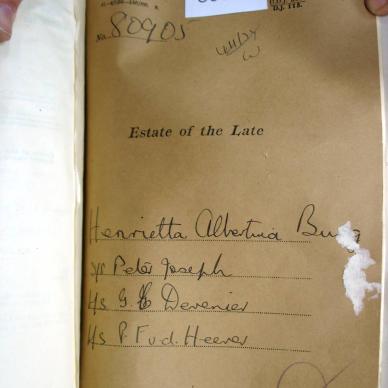 D.J. 113.
No. 80905
Estate of the Late
Henrietta Albertina
Peter Joseph
G. Devenier
P. F. v. d. Heever